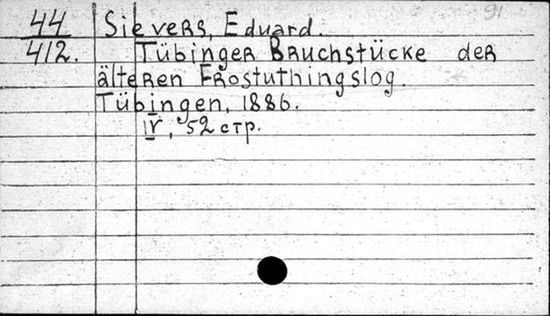 44 Sievers, Eduard. 91
412. Tübinger Bruchstücke der
älteren Frostuthingslog.
Tübingen, 1886.
IV, 52 стр.